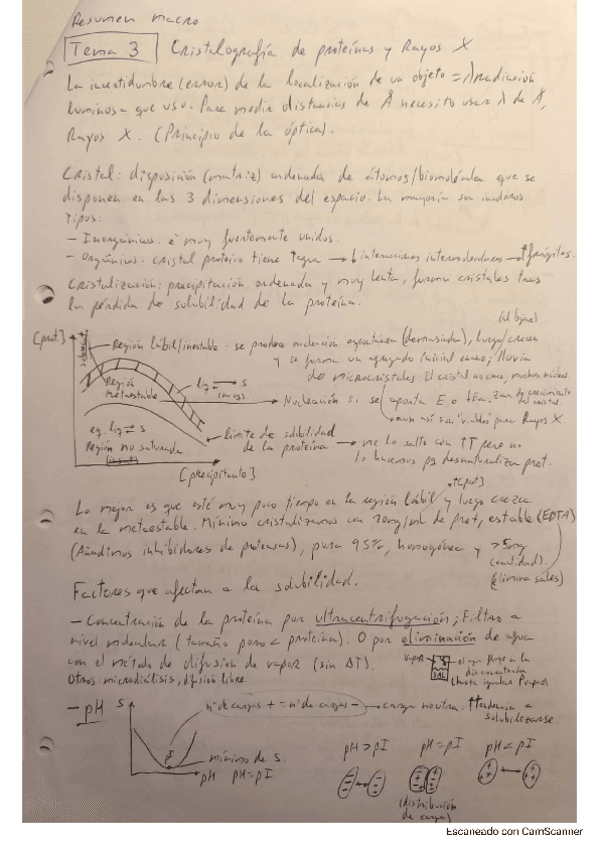 Resumen macro
Tema 3 Cristalografía de proteínas y Rayos X
La incertidumbre (error) de la localización de un objeto = λ radiación
luminosa que uso. Para medir distancias de Å necesito usar λ de Å,
Rayos X. (Principio de la óptica).
Cristal: disposición (matriz) ordenada de átomos/biomolécula que se
disponen en las 3 dimensiones del espacio. La mayoría son incoloros.
Tipos:
- Inorgánicos: muy fuertemente unidos.
- Orgánicos: cristal proteico tiene ↑agua → ↓ interacciones intermoleculares → ↑frágiles.
Cristalización: precipitación ordenada y muy lenta, forma cristales tras
la pérdida de solubilidad de la proteína.
[prot]
Región lábil/inestable · se produce nucleación espontánea (demasiada), luego crecen
y se forma un agregado inicial enano; lluvia
de microcristales. El cristal no crece, muchos núcleos.
Región
Metaestable
liq ⇌ s
Nucleación si se aporta E o ↓Ea.
aun así son "viables" para Rayos X.
eq. liq ⇌ s
Región no saturada
Límite de solubilidad
de la proteína. → me lo salto con ↑T pero no
lo hacemos pq desnaturaliza prot.
[precipitante]
↑[prot]
Lo mejor es que esté muy poco tiempo en la región lábil y luego crezca
en la metaestable. Mínimo cristalizamos con 10mg/mL de prot, estable (EDTA)
(Añadimos inhibidores de proteasas), pura 95%, homogénea y >5mg
(cantidad).
(elimina sales)
Factores que afectan a la solubilidad.
- Concentración de la proteína por ultracentrifugación; Filtro a
nivel molecular (tamaño poro < proteína). O por eliminación de agua
con el método de difusión de vapor (sin ΔT).
Otros: microdiálisis, difusión libre.
vapor
SAL
el agua fluye a la
dis concentrada
(hasta igualar Pvapor)
- pH
S
nº de cargas + = nº de cargas - → carga neutra: ↑↑tendencia a
solubilizarse.
pI
mínimo de S.
pH pH=pI
pH > pI pH = pI pH < pI
(distribución
de cargas)
Escaneado con CamScanner